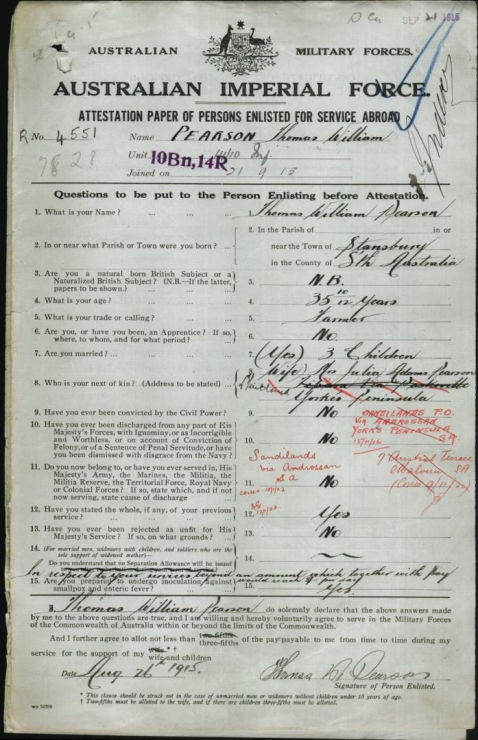 SEP 21 1915
AUSTRALIAN MILITARY FORCES.
AUSTRALIAN IMPERIAL FORCE.
ATTESTATION PAPER OF PERSONS ENLISTED FOR SERVICE ABROAD
R No. 4551 Name PEARSON Thomas William
7828 Unit 10Bn, 14R 11/10 Inf.
Joined on 21 9 15
Questions to be put to the Person Enlisting before Attestation.
1. What is your Name? ... 1. Thomas William Pearson
2. In or near what Parish or Town were you born? ... 2. In the Parish of in or
near the Town of Stansbury
in the County of Sth Australia
3. Are you a natural born British Subject or a Naturalized British Subject? (N.B.—If the latter, papers to be shown.) 3. N.B.
4. What is your age? ... 4. 35 10/12 Years
5. What is your trade or calling? ... 5. Farmer
6. Are you, or have you been, an Apprentice? If so, where, to whom, and for what period? ... 6. No
7. Are you married? ... 7. (Yes) 3 Children
8. Who is your next of kin? (Address to be stated) ... 8. (Wife) Mrs Julia Adams Pearson
Maitland
Yorkes Peninsula
9. Have you ever been convicted by the Civil Power? 9. No
SANDILANDS P.O.
via ARDROSSAN
YORKS PENINSULA
SA
10. Have you ever been discharged from any part of His Majesty's Forces, with Ignominy, or as Incorrigible and Worthless, or on account of Conviction of Felony, or of a Sentence of Penal Servitude, or have you been dismissed with disgrace from the Navy? 10. No
Sandilands
via Ardrossan
S A
Terrace
SA
11. Do you now belong to, or have you ever served in, His Majesty's Army, the Marines, the Militia, the Militia Reserve, the Territorial Force, Royal Navy or Colonial Forces? If so, state which, and if not now serving, state cause of discharge 11. No
12. Have you stated the whole, if any, of your previous service? ... 12. Yes
13. Have you ever been rejected as unfit for His Majesty's Service? If so, on what grounds? ... 13. No
14. (For married men, widowers with children, and soldiers who are the sole support of widowed mother)—
Do you understand that no Separation Allowance will be issued 14.
In respect to your service beyond an amount which together with pay
15. Are you prepared to undergo inoculation against smallpox and enteric fever? 15. Yes.
I, Thomas William Pearson do solemnly declare that the above answers made by me to the above questions are true, and I am willing and hereby voluntarily agree to serve in the Military Forces of the Commonwealth of Australia within or beyond the limits of the Commonwealth.
And I further agree to allot not less than two-fifths three-fifths of the pay payable to me from time to time during my service for the support of my wife* wife and children †
Date Aug 26th 1915. Thomas W. Pearson
Signature of Person Enlisted.
* This clause should be struck out in the case of unmarried men or widowers without children under 18 years of age.
† Two-fifths must be allotted to the wife, and if there are children three-fifths must be allotted.